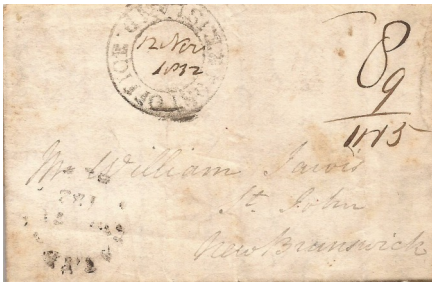 POST OFFICE
12 Nov
1832
8
9
1N5
Mr William Jarvis
St. John
New Brunswick